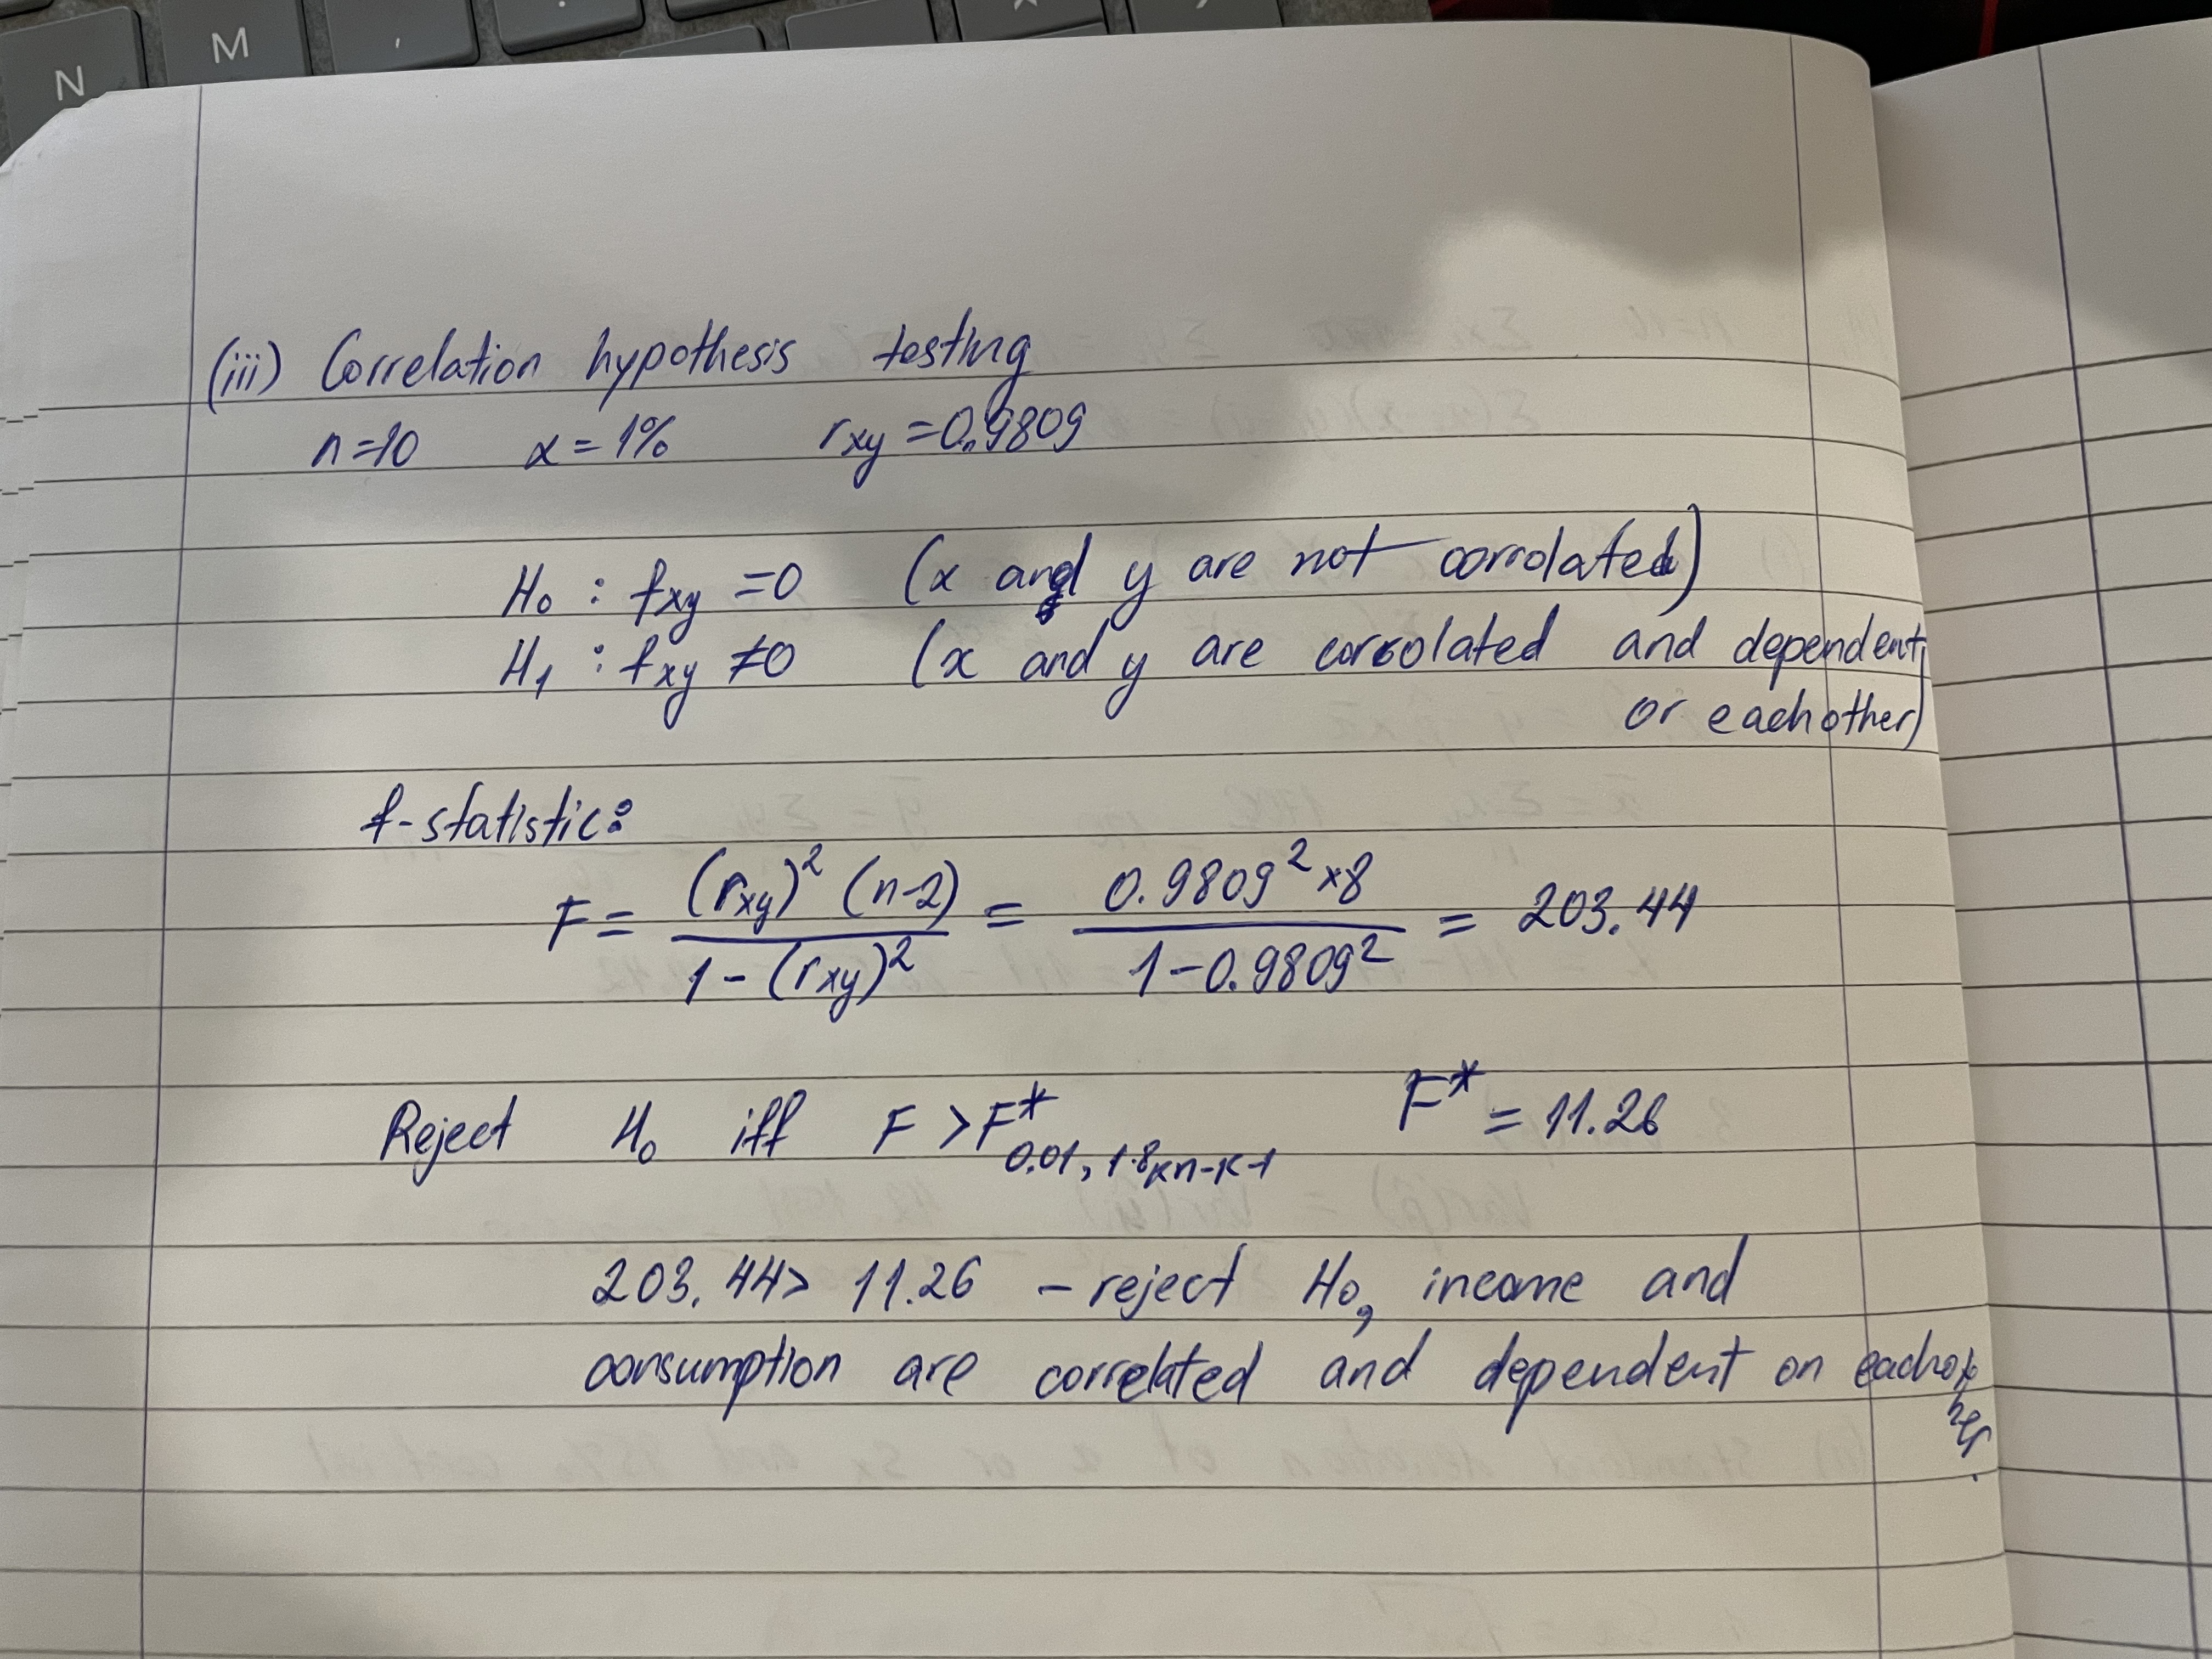 N
M
,
(iii) Correlation hypothesis testing
n=10 α=1% rxy=0.9809
H₀ : fxy =0 (x and y are not corrolated)
H₁ : fxy ≠0 (x and y are corrolated and dependent
or each other)
f-statistic:
F= (rxy)² (n-2) / 1-(rxy)² = 0.9809²×8 / 1-0.9809² = 203.44
Reject H₀ iff F >F* 0.01, 1.8,k n-k-1 F* = 11.26
203.44> 11.26 - reject H₀, income and
consumption are correlated and dependent on eachother.